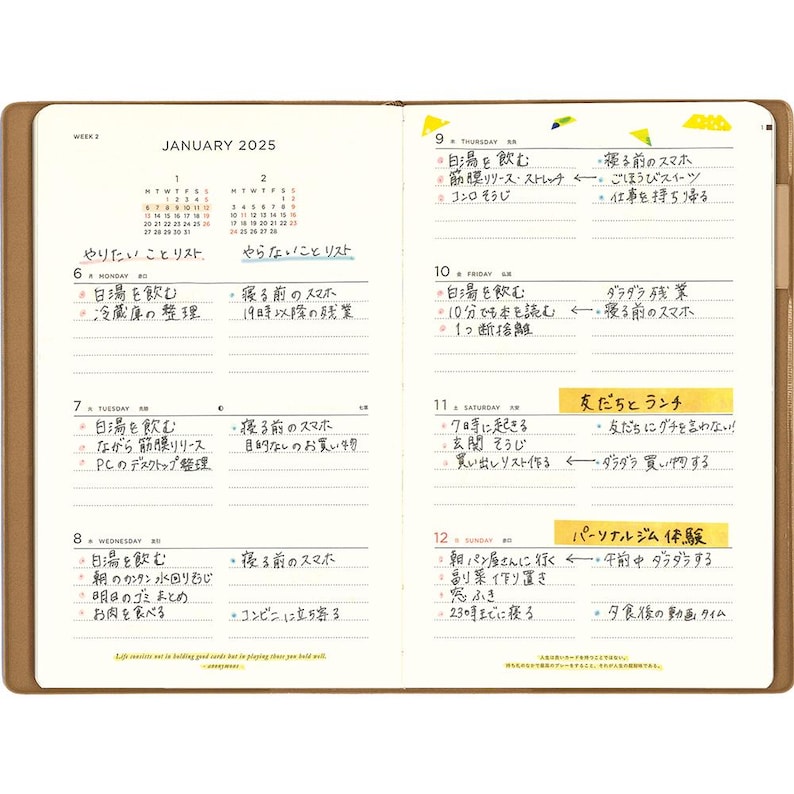 WEEK 2
JANUARY 2025
1
M T W T F S S
1 2 3 4 5
6 7 8 9 10 11 12
13 14 15 16 17 18 19
20 21 22 23 24 25 26
27 28 29 30 31
2
M T W T F S S
1 2
3 4 5 6 7 8 9
10 11 12 13 14 15 16
17 18 19 20 21 22 23
24 25 26 27 28
やりたいことリスト
やらないことリスト
6 月 MONDAY 赤口
白湯を飲む
寝る前のスマホ
冷蔵庫の整理
19時以降の残業
7 火 TUESDAY 先勝
七草
白湯を飲む
寝る前のスマホ
ながら筋膜リリース
目的なしのお買い物
PCのデスクトップ整理
8 水 WEDNESDAY 友引
白湯を飲む
寝る前のスマホ
朝のカンタン水回りそうじ
明日のゴミまとめ
お肉を食べる
コンビニに立ち寄る
Life consists not in holding good cards but in playing those you hold well.
- anonymous
1
9 木 THURSDAY 先負
白湯を飲む
寝る前のスマホ
筋膜リリース・ストレッチ ← ごほうびスイーツ
コンロそうじ
仕事を持ち帰る
10 金 FRIDAY 仏滅
白湯を飲む
ダラダラ残業
10分でも本を読む ← 寝る前のスマホ
1つ断捨離
11 土 SATURDAY 大安
友だちとランチ
7時に起きる
友だちにグチを言わない!
玄関そうじ
買い出しリスト作る ← ダラダラ買い物する
12 日 SUNDAY 赤口
パーソナルジム体験
朝パン屋さんに行く ← 午前中ダラダラする
副菜作り置き
窓ふき
23時までに寝る
夕食後の動画タイム
人生は良いカードを持つことではない。
持ち札のなかで最高のプレーをすること、それが人生の醍醐味である。